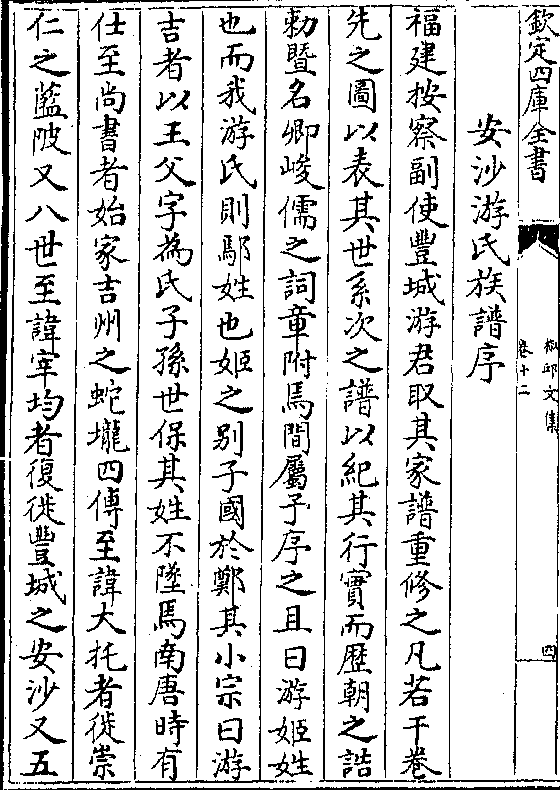 欽定四庫全書
卷十二
四
安沙游氏族譜序
福建按察副使豐城游君取其家譜重修之凡若干卷
先之圖以表其世系次之譜以紀其行實而歷朝之誥
勅暨名卿峻儒之詞章附焉間屬予序之且曰游姬姓
也而我游氏則鄢姓也姬之别子國於鄭其小宗曰游
吉者以王父字為氏子孫世保其姓不墜焉南唐時有
仕至尚書者始家吉州之蛇壠四傳至諱大托者徙崇
仁之藍陂又八世至諱宰均者復徙豐城之安沙又五